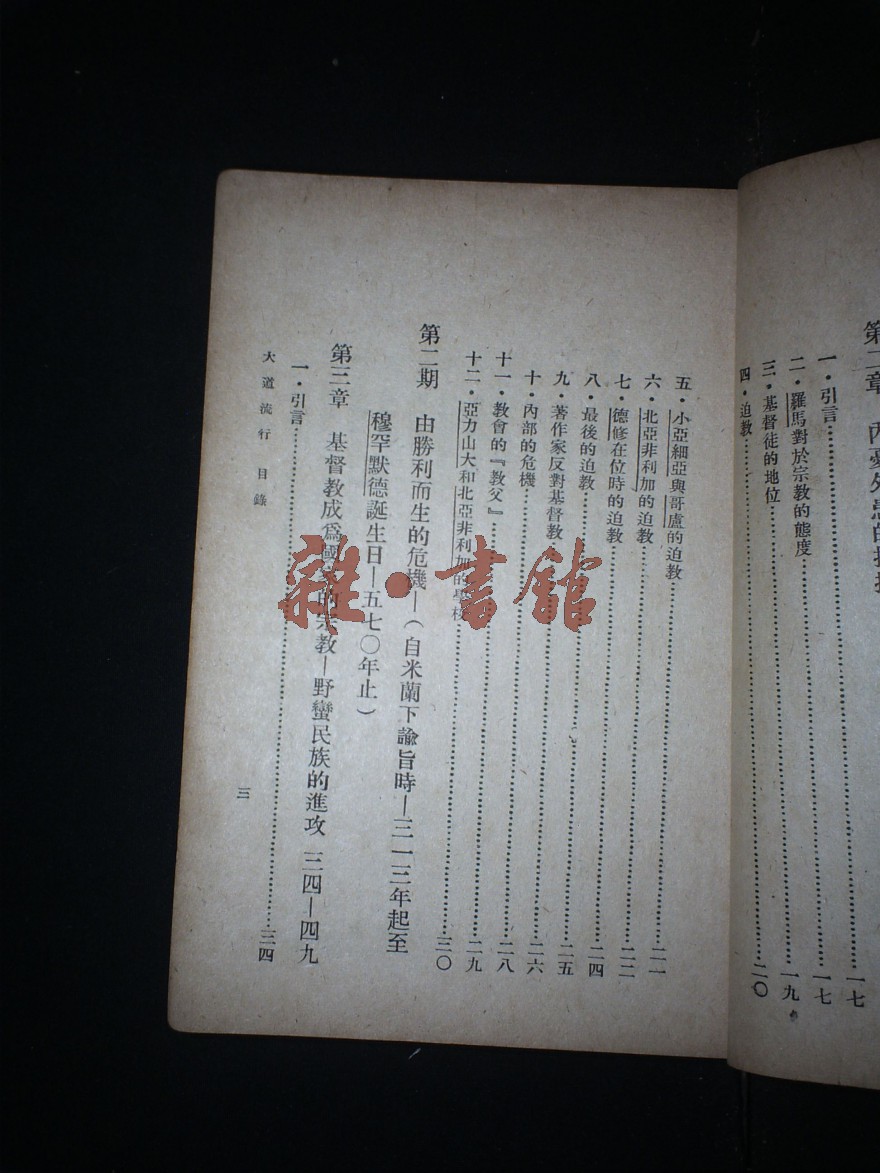 第二章 內憂外患的
一・引言……一七
二・羅馬對於宗教的態度……一七
三・基督徒的地位……一九
四・迫教……二〇
五・小亞細亞與哥盧的迫教……二一
六・北亞非利加的迫教……二二
七・德修在位時的迫教……二四
八・最後的迫教……二五
九・著作家反對基督教……二六
十・內部的危機……二八
十一・教會的『教父』……二九
十二・亞力山大和北亞非利加的學校……三〇
第二期 由勝利而生的危機—(自米蘭下諭旨時—三一三年起至
穆罕默德誕生日—五七〇年止)
第三章 基督教成爲國家的宗教—野蠻民族的進攻 三四—四九
一・引言……三四
大道流行 目錄
三
雜・書館